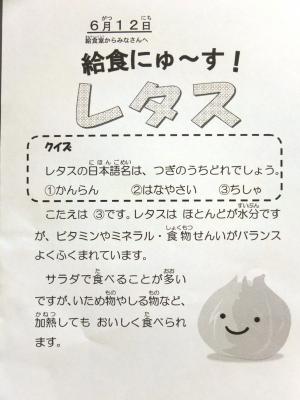 6月12日
給食室からみなさんへ
給食にゅ～す！
レタス
クイズ
レタスの日本語名は、つぎのうちどれでしょう。
①かんらん ②はなやさい ③ちしゃ
こたえは ③です。レタスは ほとんどが水分です
が、ビタミンやミネラル・食物せんいがバランス
よくふくまれています。
サラダで食べることが多い
ですが、いため物やしる物など、
加熱しても おいしく食べられ
ます。